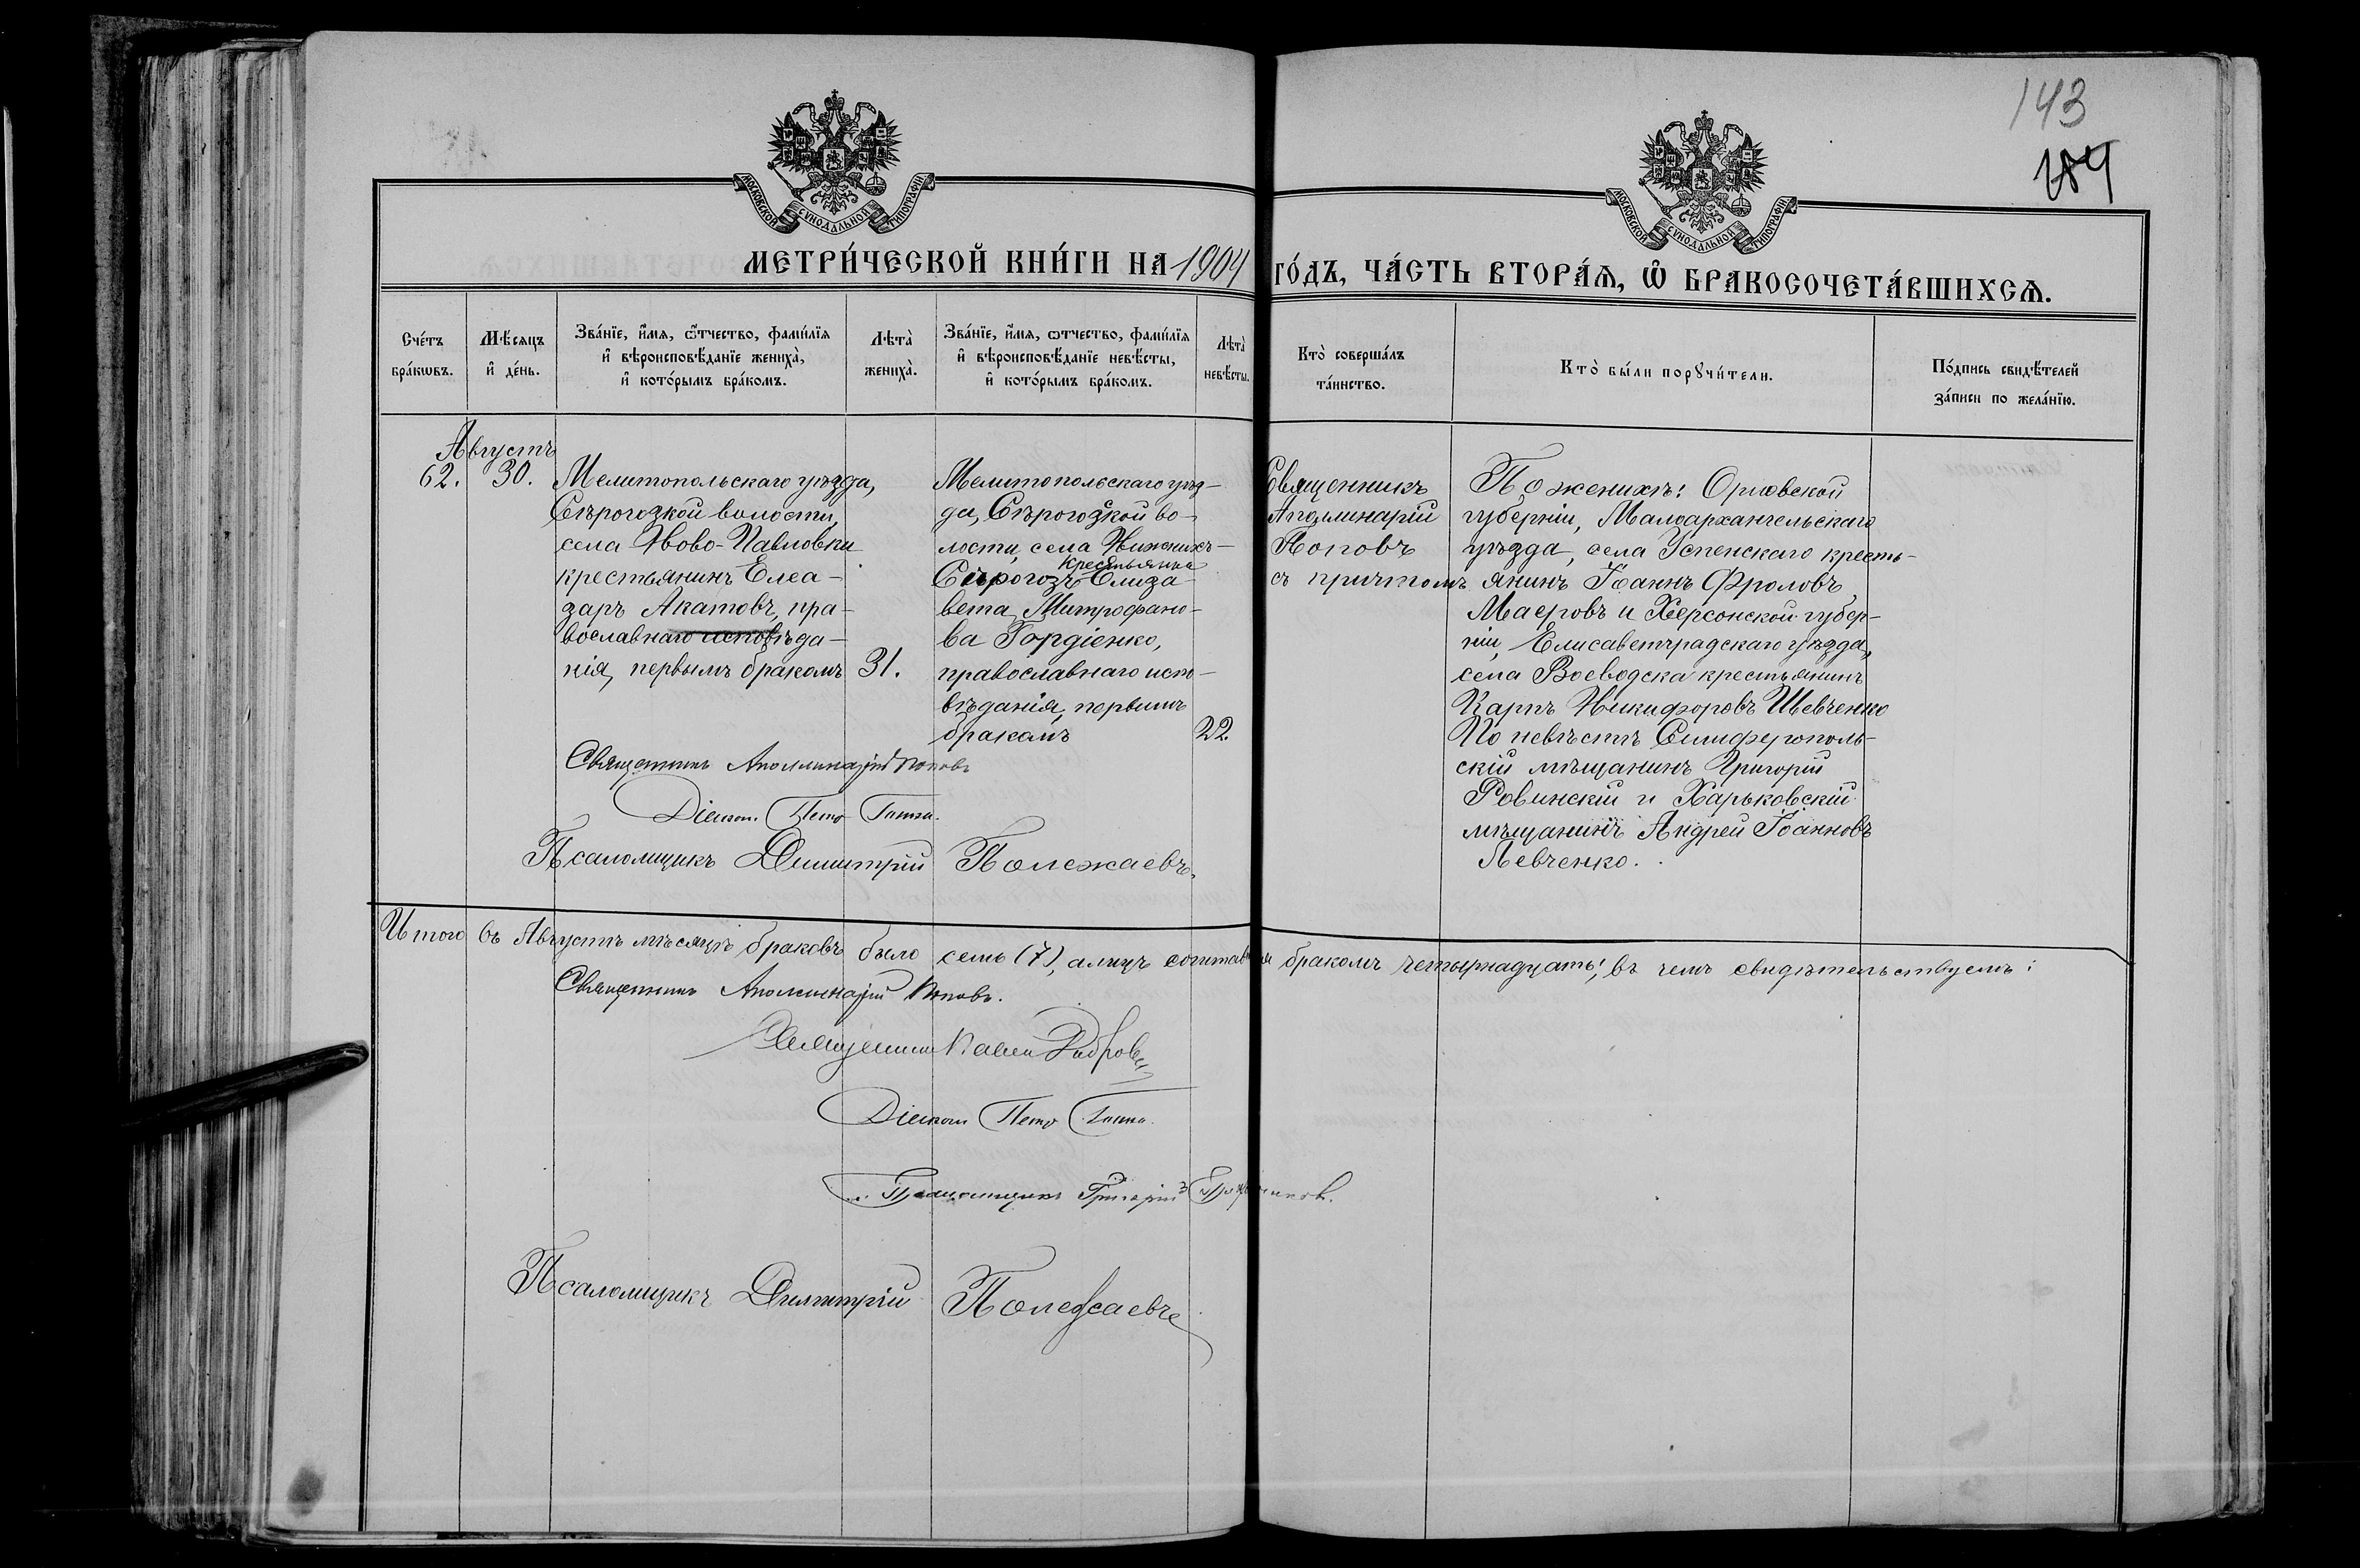 143
184
МОСКОВСКОЙ СѴНОДАЛЬНОЙ ТИПОГРАФІИ
МОСКОВСКОЙ СѴНОДАЛЬНОЙ ТИПОГРАФІИ
МЕТРИ́ЧЕСКОЙ КНИ́ГИ НА 1904 ГО́ДЪ, ЧА́СТЬ ВТОРА́Ѧ, Ѡ҆ БРАКОСОЧЕТА́ВШИХСѦ.
Сче́тъ
бра́кѡвъ.
Мѣ́сяцъ
и҆ де́нь.
Зва́нїе, и҆́мѧ, ѻ҆́тчество, фами́лїѧ
и҆ вѣроисповѣ́данїе жениха̀,
и҆ кото́рымъ бра́комъ.
Лѣта̀
жениха̀.
Зва́нїе, и҆́мѧ, ѻтчество, фами́лїѧ
и҆ вѣроисповѣ́данїе невѣ́сты,
и҆ кото́рымъ бра́комъ.
Лѣта̀
невѣ́сты.
Кто̀ соверша́лъ
та́инство.
Кто̀ бы́ли порꙋчи́тели.
По́дпись свидѣ́телей
за́писи по жела́нїю.
Августъ
62.
30.
Мелитопольскаго уѣзда,
Сѣрогозкой волости,
села Ново-Павловки
крестьянинъ Елеа-
заръ Акатовъ, пра-
вославнаго исповѣда-
нія, первымъ бракомъ
31.
Мелитопольскаго уѣз-
да, Сѣрогозской во-
лости, села Нижнихъ-
Сѣрогозъ крестьянка Елиза-
вета Митрофано-
ва Гордіенко,
православнаго испо-
вѣданія, первымъ
бракомъ
22.
Священникъ
Аполлинарій
Поповъ
съ причтомъ
По женихѣ: Орловской
губерніи, Малоархангельскаго
уѣзда, села Успенскаго кресть-
янинъ Іоаннъ Фроловъ
Маеровъ и Херсонской губер-
ніи, Елисаветградскаго уѣзда,
села Воеводска крестьянинъ
Карпъ Никифоровъ Шевченко
По невѣстѣ Симферополь-
скій мѣщанинъ Григорій
Ровинскій и Харьковскій
мѣщанинъ Андрей Іоанновъ
Левченко.
Священникъ Аполлинарій Поповъ
Діакон Петр
Псаломщикъ Димитрій Полежаевъ.
Итого въ Августѣ мѣсяцѣ браковъ было семь (7), а лицъ сочетавш бракомъ четырнадцать; въ чемъ свидѣтельствуемъ:
Священникъ Аполлинарій Поповъ.
Священникъ Павел
Діакон Петр
Псаломщикъ Григорій
Псаломщикъ Димитрій Полежаевъ